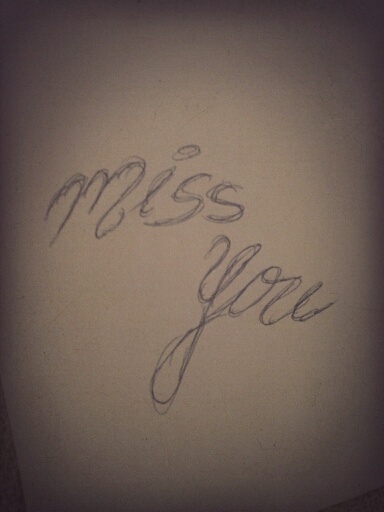 Miss
You